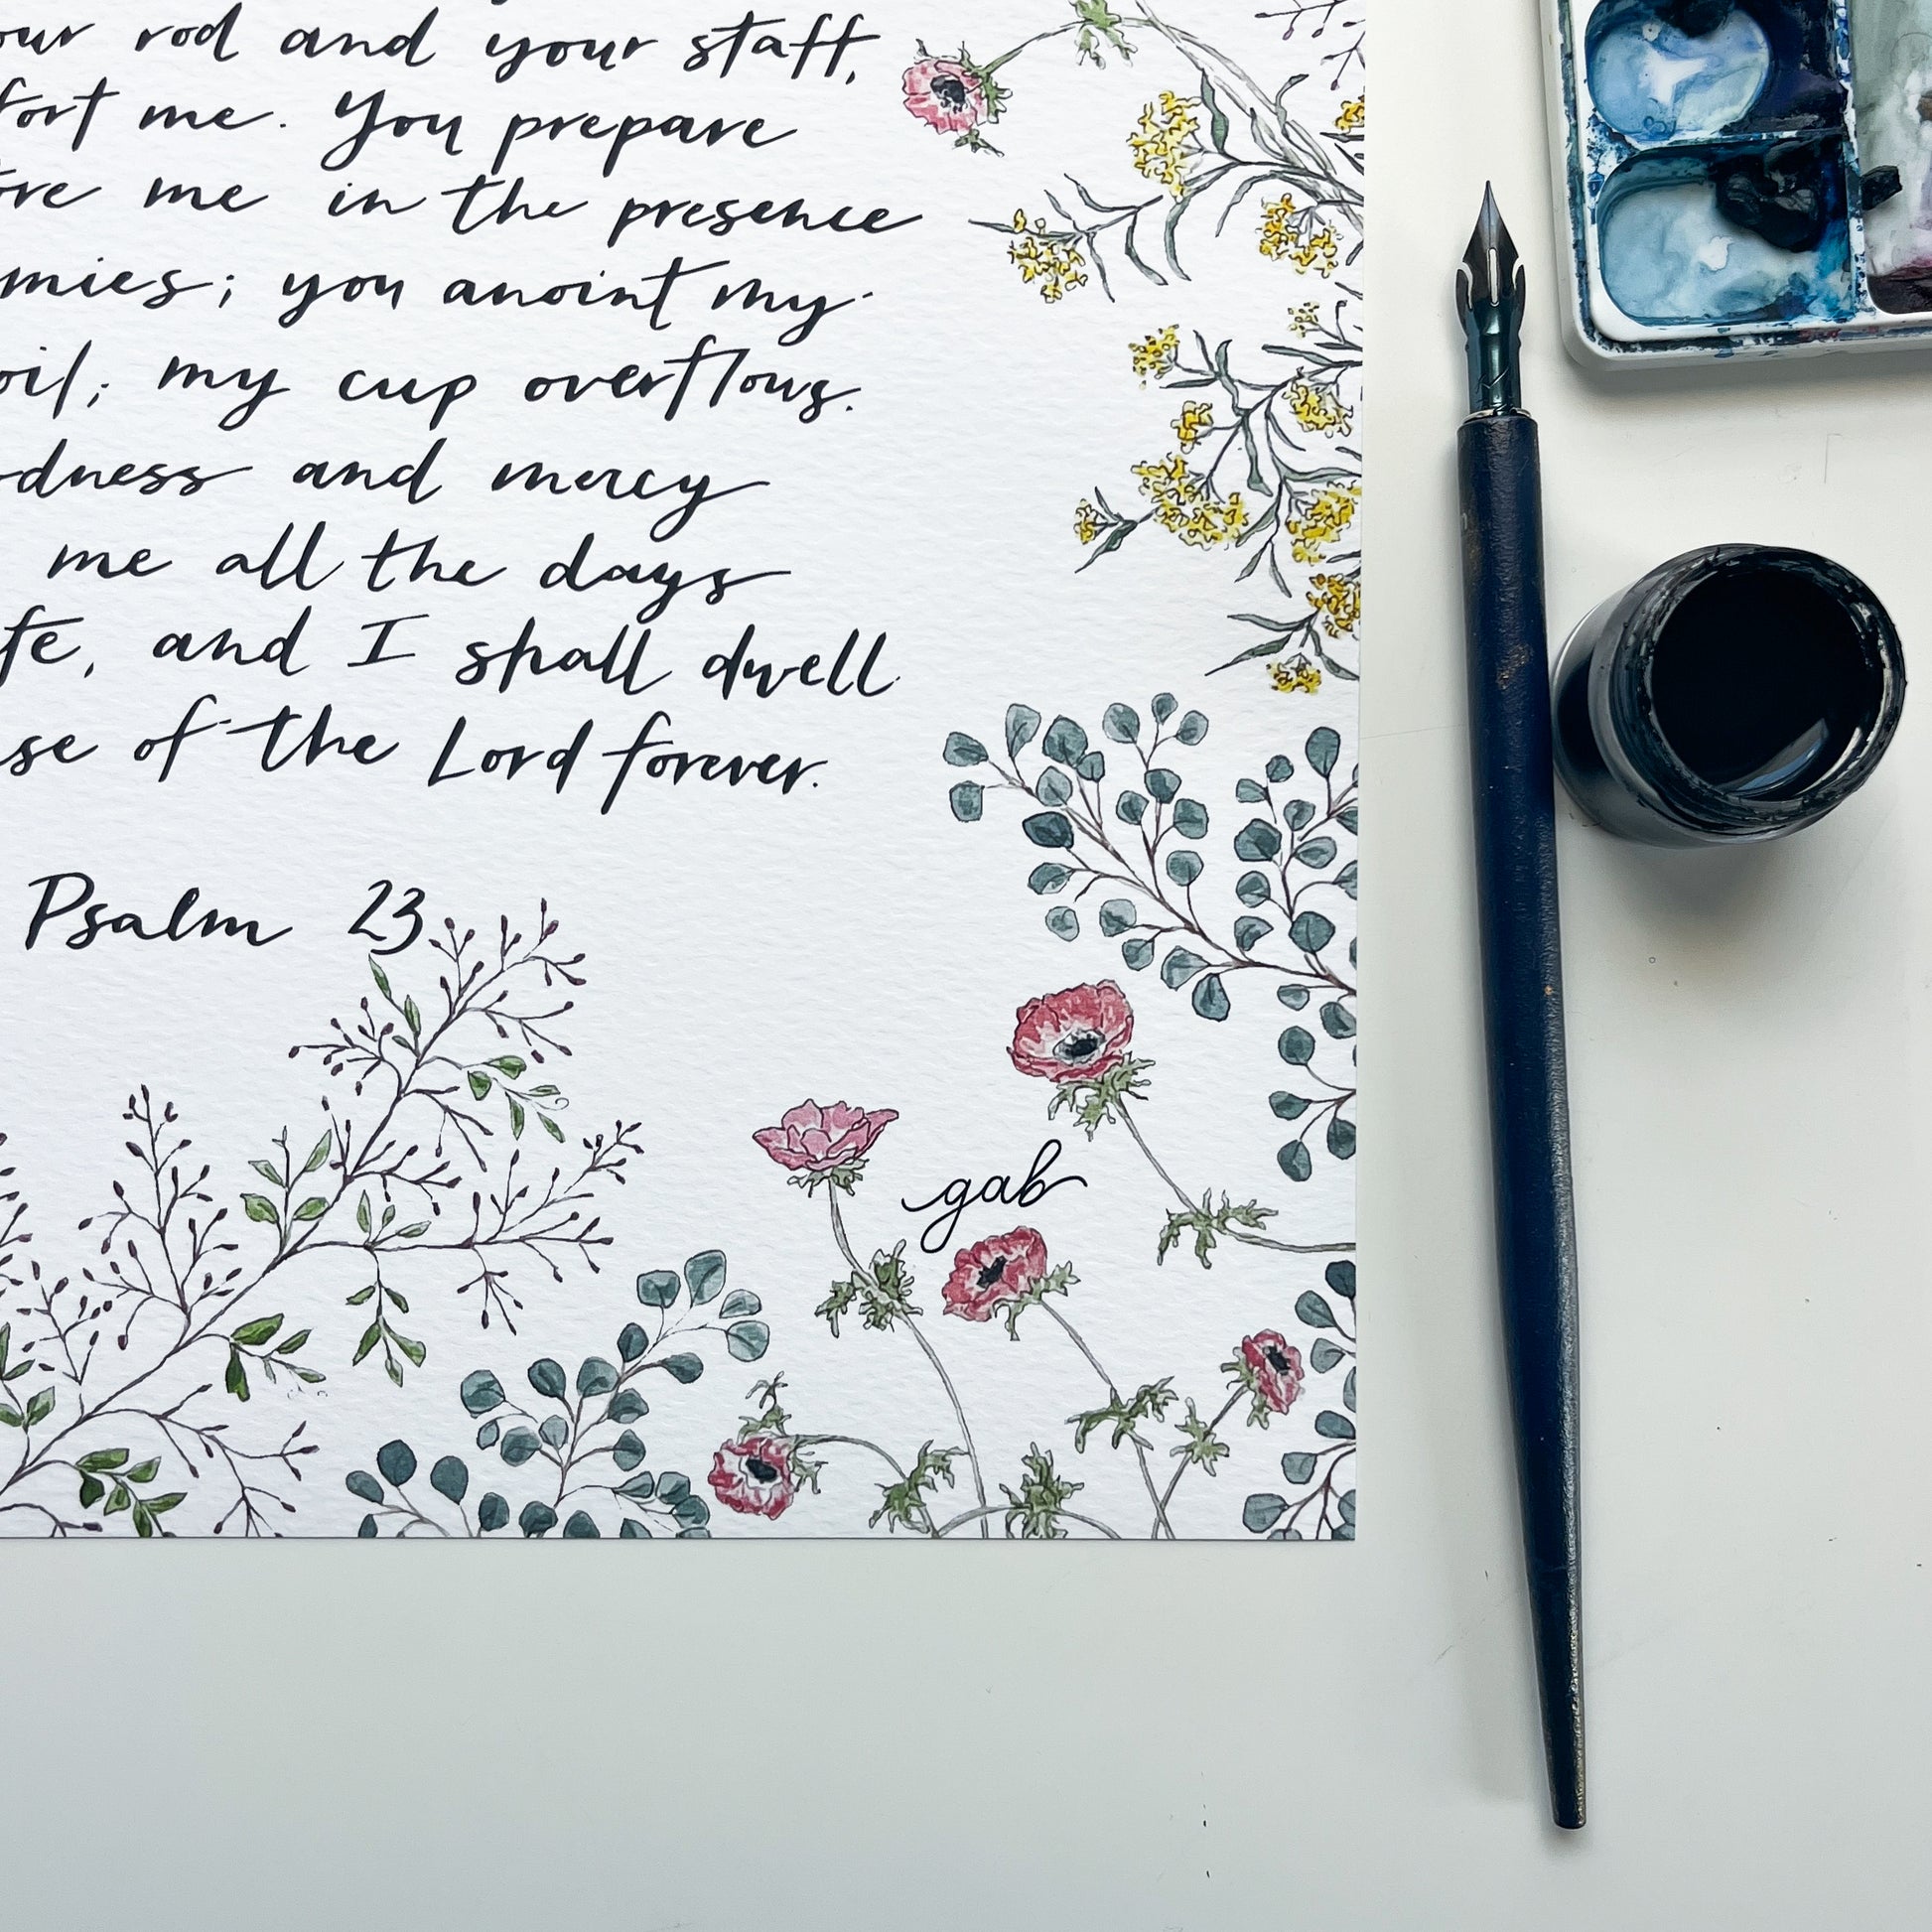 our rod and your staff,
fort me. You prepare
ore me in the presence
mies; you anoint my
oil; my cup overflows.
odness and mercy
me all the days
fe, and I shall dwell
se of the Lord forever.
Psalm 23
gab